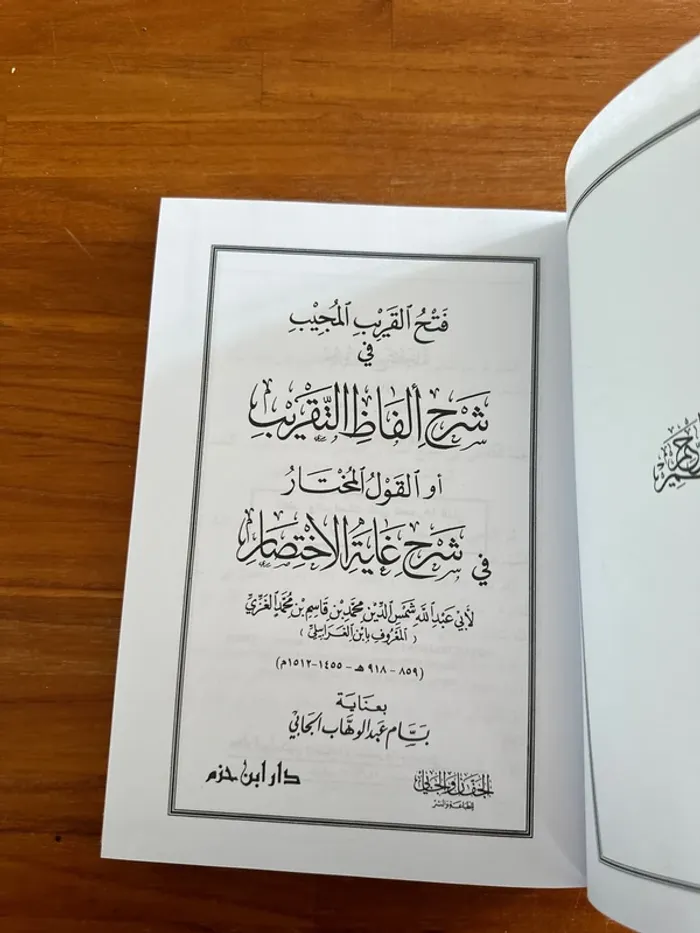 فَتْحُ القَرِيْبِ المُجِيْبِ
في
شَرْحِ أَلفَاظِ التَّقْرِيْبِ
أو القَوْلُ المُخْتَارُ
في شَرْحِ غَايَةِ الاخْتِصَارِ
لأَبي عَبْدِ اللَّه شَمْسِ الدِّيْنِ مُحَمَّدِ بْنِ قَاسِمِ بْنِ مُحَمَّدٍ الغَزِّي
( المَعْرُوفِ بِابْنِ الغَرَابِيلِيِّ )
(٨٥٩ - ٩١٨ هـ - ١٤٥٥-١٥١٢م)
بعنَاية
بَسَّام عَبد الوهَّاب الجَابي
الجفان والجابي
للطباعة والنشر
دار ابن حزم